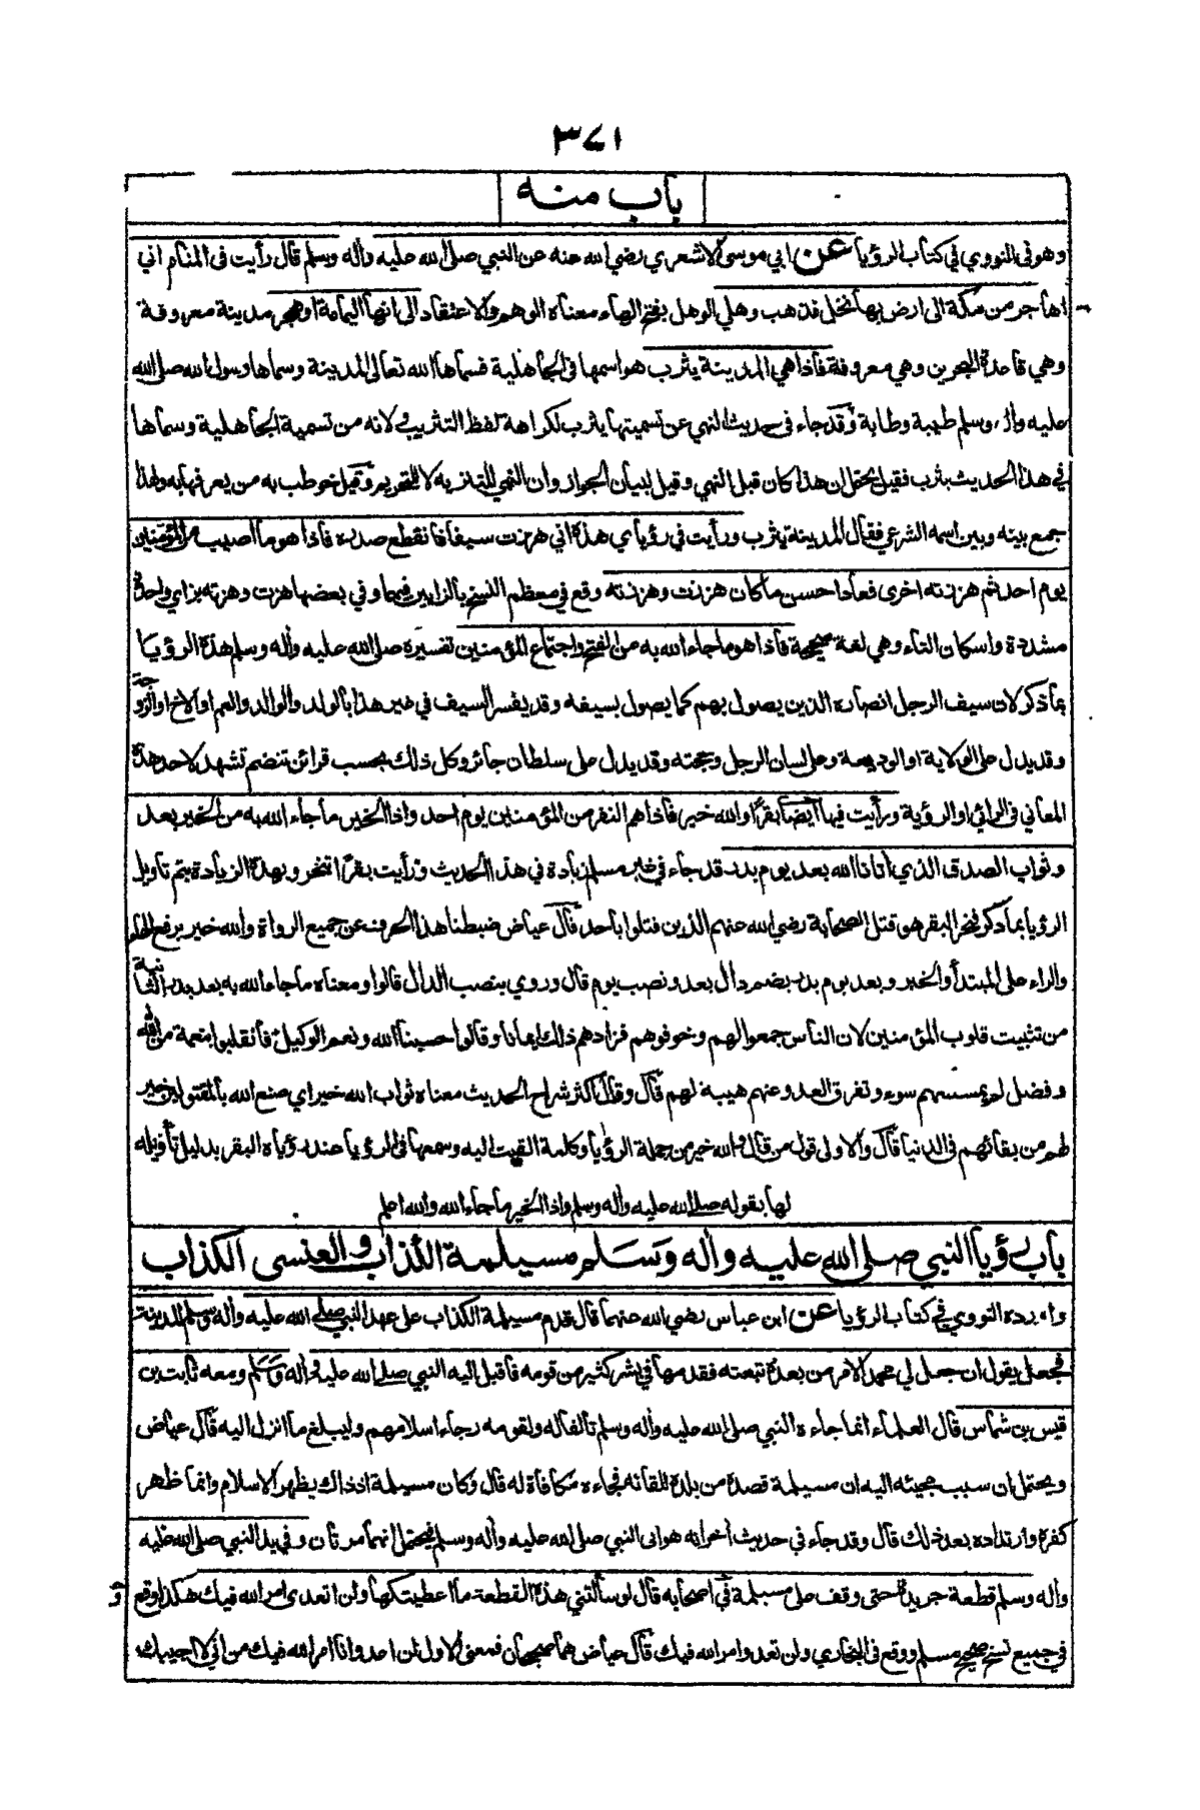 ٣٧١
باب منه
وهو في النووي في كتاب الرؤيا عن ابي موسى الاشعري رضي الله عنه عن النبي صلى الله عليه واله وسلم قال رأيت في المنام اني
اهاجر من مكة الى ارض بها نخل فذهب وهلي الوهل بفتح الهاء معناه الوهم والاعتقاد الى انها اليمامة او هجر مدينة معروفة
وهي قاعدة البحرين وهي معروفة فاذا هي المدينة يثرب هو اسمها في الجاهلية فسماها الله تعالى المدينة وسماها رسول الله صلى الله
عليه واله وسلم طيبة وطابة وقد جاء في حديث النهي عن تسميتها يثرب لكراهة لفظ التثريب ولانه من تسمية الجاهلية وسماها
في هذا الحديث يثرب فقيل يحتمل ان هذا كان قبل النهي وقيل لبيان الجواز وان النهي للتنزيه لا للتحريم وقيل خوطب به من يعرفها به ولهذا
جمع بينه وبين اسمه الشرعي فقال المدينة يثرب ورأيت في رؤياي هذه اني هززت سيفا فانقطع صدره فاذا هو ما اصيب من المؤمنين
يوم احد ثم هززته اخرى فعاد احسن ما كان هززت وهززته وقع في معظم النسخ بالزايين فيهما وفي بعضها هزت وهزته بزاي واحدة
مشددة واسكان التاء وهي لغة صحيحة فاذا هو ما جاء الله به من الفتح واجتماع المؤمنين تفسيره صلى الله عليه واله وسلم هذه الرؤيا
بما ذكر لان سيف الرجل انصاره الذين يصول بهم كما يصول بسيفه وقد يفسر السيف في غير هذا بالولد والوالد والعم او الاخ او الزوجة
وقد يدل على الولاية او الوديعة وعلى لسان الرجل وحجته وقد يدل على سلطان جائر وكل ذلك بحسب قرائن تنضم تشهد لاحد هذه
المعاني في الرائي او الرؤية ورأيت فيها ايضا بقرا والله خير فاذا هم النفر من المؤمنين يوم احد واذا الخير ما جاء الله به من الخير بعد
وثواب الصدق الذي اتانا الله بعد يوم بدر قد جاء في غير مسلم زيادة في هذا الحديث ورأيت بقرا تنحر وبهذه الزيادة يتم تاويل
الرؤيا بما ذكر فنحر البقر هو قتل الصحابة رضي الله عنهم الذين قتلوا باحد قال عياض ضبطنا هذا الحرف عن جميع الرواة والله خير برفع الهاء
والراء على المبتدأ والخبر وبعد يوم بدر بضم دال بعد ونصب يوم قال وروي بنصب الدال قالوا ومعناه ما جاء الله به بعد بدر الثانية
من تثبيت قلوب المؤمنين لان الناس جمعوا لهم وخوفوهم فزادهم ذلك ايمانا وقالوا حسبنا الله ونعم الوكيل فانقلبوا بنعمة من الله
وفضل لم يمسسهم سوء وتفرق العدو عنهم هيبة لهم قال وقال اكثر شراح الحديث معناه ثواب الله خير اي صنع الله بالمقتولين خير
لهم من بقائهم في الدنيا قال والاولى قول من قال والله خير من جملة الرؤيا وكلمة القيت اليه وسمعها في الرؤيا عند رؤياه البقر بدليل تأويله
لها بقوله صلى الله عليه واله وسلم واذا الخير ما جاء الله والله اعلم
باب رؤيا النبي صلى الله عليه واله وسلم مسيلمة الكذاب والعنسي الكذاب
واورده النووي في كتاب الرؤيا عن ابن عباس رضي الله عنهما قال قدم مسيلمة الكذاب على عهد النبي صلى الله عليه واله وسلم المدينة
فجعل يقول ان جعل لي محمد الامر من بعده تبعته فقدمها في بشر كثير من قومه فاقبل اليه النبي صلى الله عليه واله وسلم ومعه ثابت بن
قيس بن شماس قال العلماء انما جاءه النبي صلى الله عليه واله وسلم تألفا له ولقومه رجاء اسلامهم وليبلغ ما انزل اليه قال عياض
ويحتمل ان سبب مجيئه اليه ان مسيلمة قصده من بلده للقائه فجاءه مكافاة له قال وكان مسيلمة اذ ذاك يظهر الاسلام وانما ظهر
كفره وارتداده بعد ذلك قال وقد جاء في حديث اخر انه هو اتى النبي صلى الله عليه واله وسلم فيحتمل انهما مرتان وفي يد النبي صلى الله عليه
واله وسلم قطعة جريدة حتى وقف على مسيلمة في اصحابه قال لو سألتني هذه القطعة ما اعطيتكها ولن اتعدى امر الله فيك هكذا وقع
في جميع نسخ صحيح مسلم ووقع في البخاري ولن تعدو امر الله فيك قال عياض هما صحيحان فمعنى الاول لن اعدو انا امر الله فيك من اني لا اجيبك